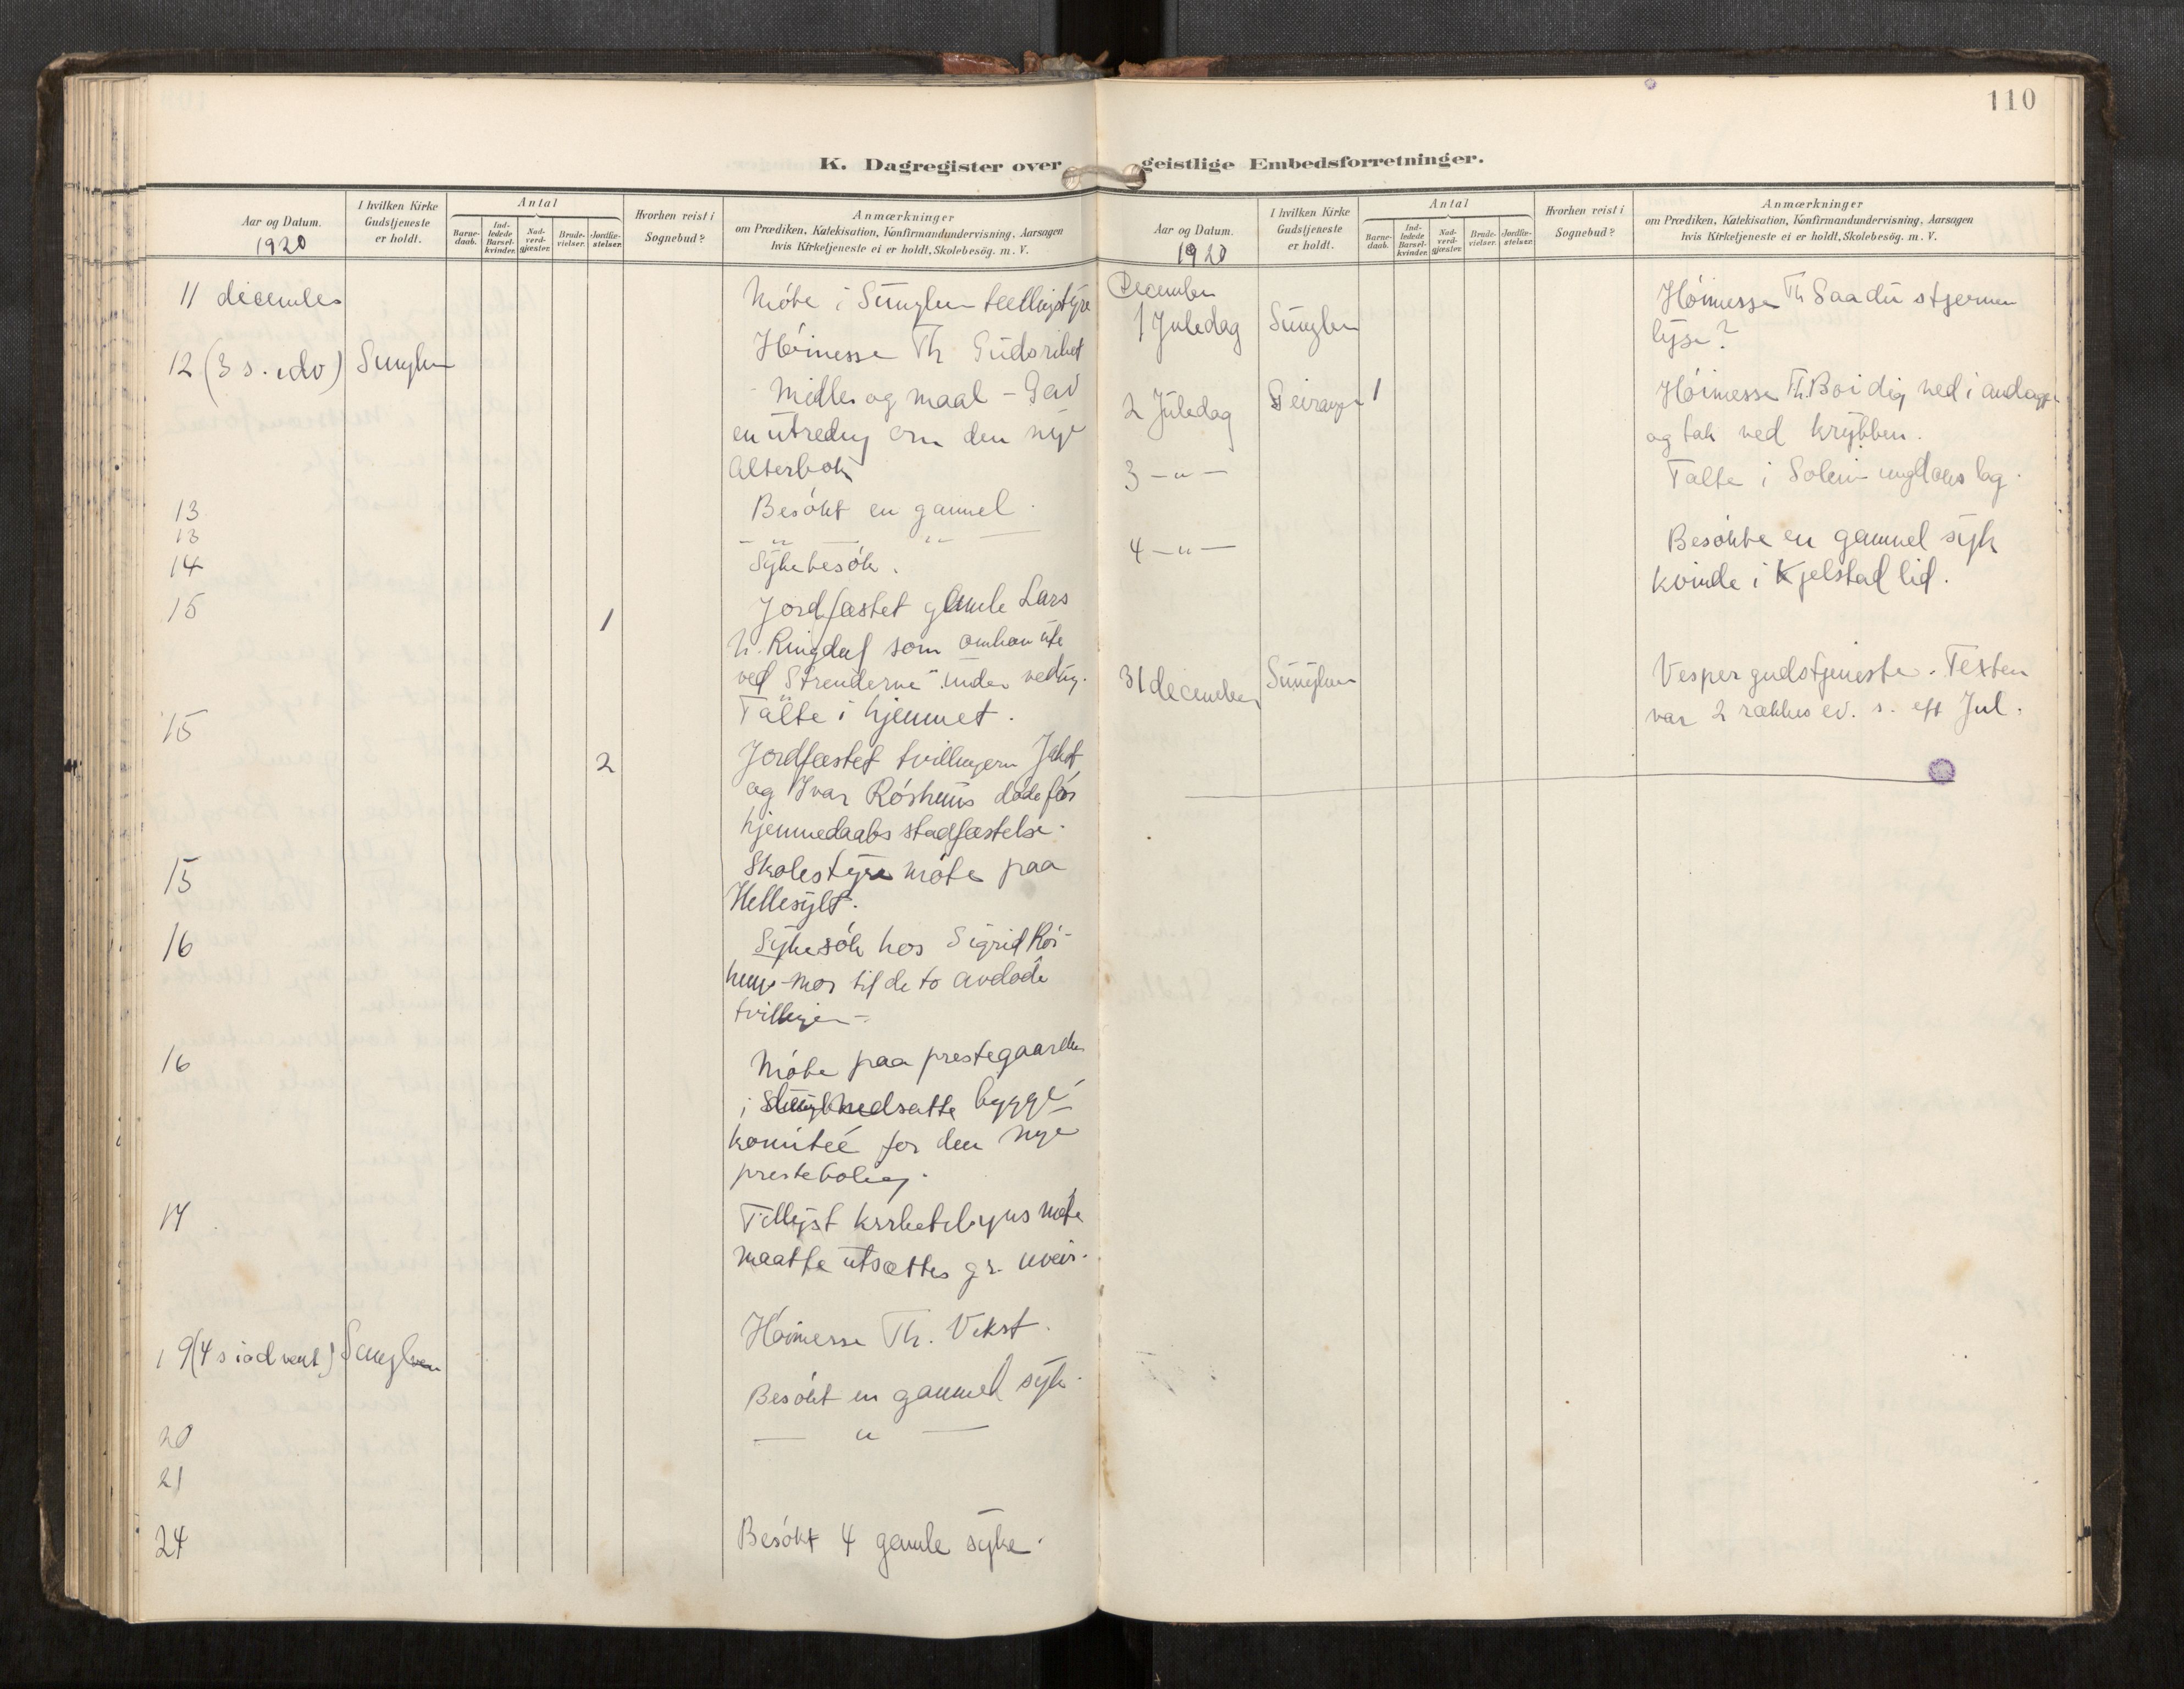 110
K. Dagregister over geistlige Embedsforretninger.
Aar og Datum.
1920
I hvilken Kirke
Gudstjeneste
er holdt.
Antal
Barne-
daab.
Ind-
ledede
Barsel-
kvinder.
Nad-
verd-
gjæster.
Brude-
vielser.
Jordfæ-
stelser.
Hvorhen reist i
Sognebud?
Anmærkninger
om Prædiken, Katekisation, Konfirmandundervisning, Aarsagen
hvis Kirketjeneste ei er holdt, Skolebesög. m. V.
11 december
Möte i Sunylven
12 (3 s. i adv) Sunylven
Höimesse Th Guds riket
- Midler og maal - Gav
en utredng om den nye
Alterbok
13
Besökt en gammel
13
— " — " —
14
Sykebesök.
15
1
Jordfæstet gamle Lars
Ringdal som omkom ute
ved "Strenderne" under
15
Talte i hjemmet.
2
Jordfæstet tvillingern
og Ivar Röshaus döde för
hjemmedaabs stadfæstelse.
15
Skolestyre möte paa
Hellesylt.
16
Sykesök hos Sigrid Rös-
haug - mor til de to avdöde
tvillinger -
16
Möte paa prestegaarden
i nedsatte bygge-
komiteé for den nye
prestebolig.
17
Tillyst möte
maatte utsættes gr. uveir.
19 (4 s i advent) Sunylven
Höimesse Th. Vekst.
20
Besökt en gammel syk.
21
— " —
24
Besökt 4 gamle syke.
Aar og Datum.
1920
I hvilken Kirke
Gudstjeneste
er holdt.
Antal
Barne-
daab.
Ind-
ledede
Barsel-
kvinder.
Nad-
verd-
gjæster.
Brude-
vielser.
Jordfæ-
stelser.
Hvorhen reist i
Sognebud?
Anmærkninger
om Prædiken, Katekisation, Konfirmandundervisning, Aarsagen
hvis Kirketjeneste ei er holdt, Skolebesög. m. V.
December
1 Juledag Sunylven
Höimesse Th Saa du stjernen
lyse?
2 Juledag Geiranger 1
Höimesse Th. Böi dig ned i andagt
og tak ved krybben.
3 — " —
Talte i ungdoms lag.
4 — " —
Besökte en gammel syk
kvinde i Kjelstad lid.
31 december Sunylven
Vesper gudstjeneste. Texten
var 2 rækkes ev. s. eft Jul.